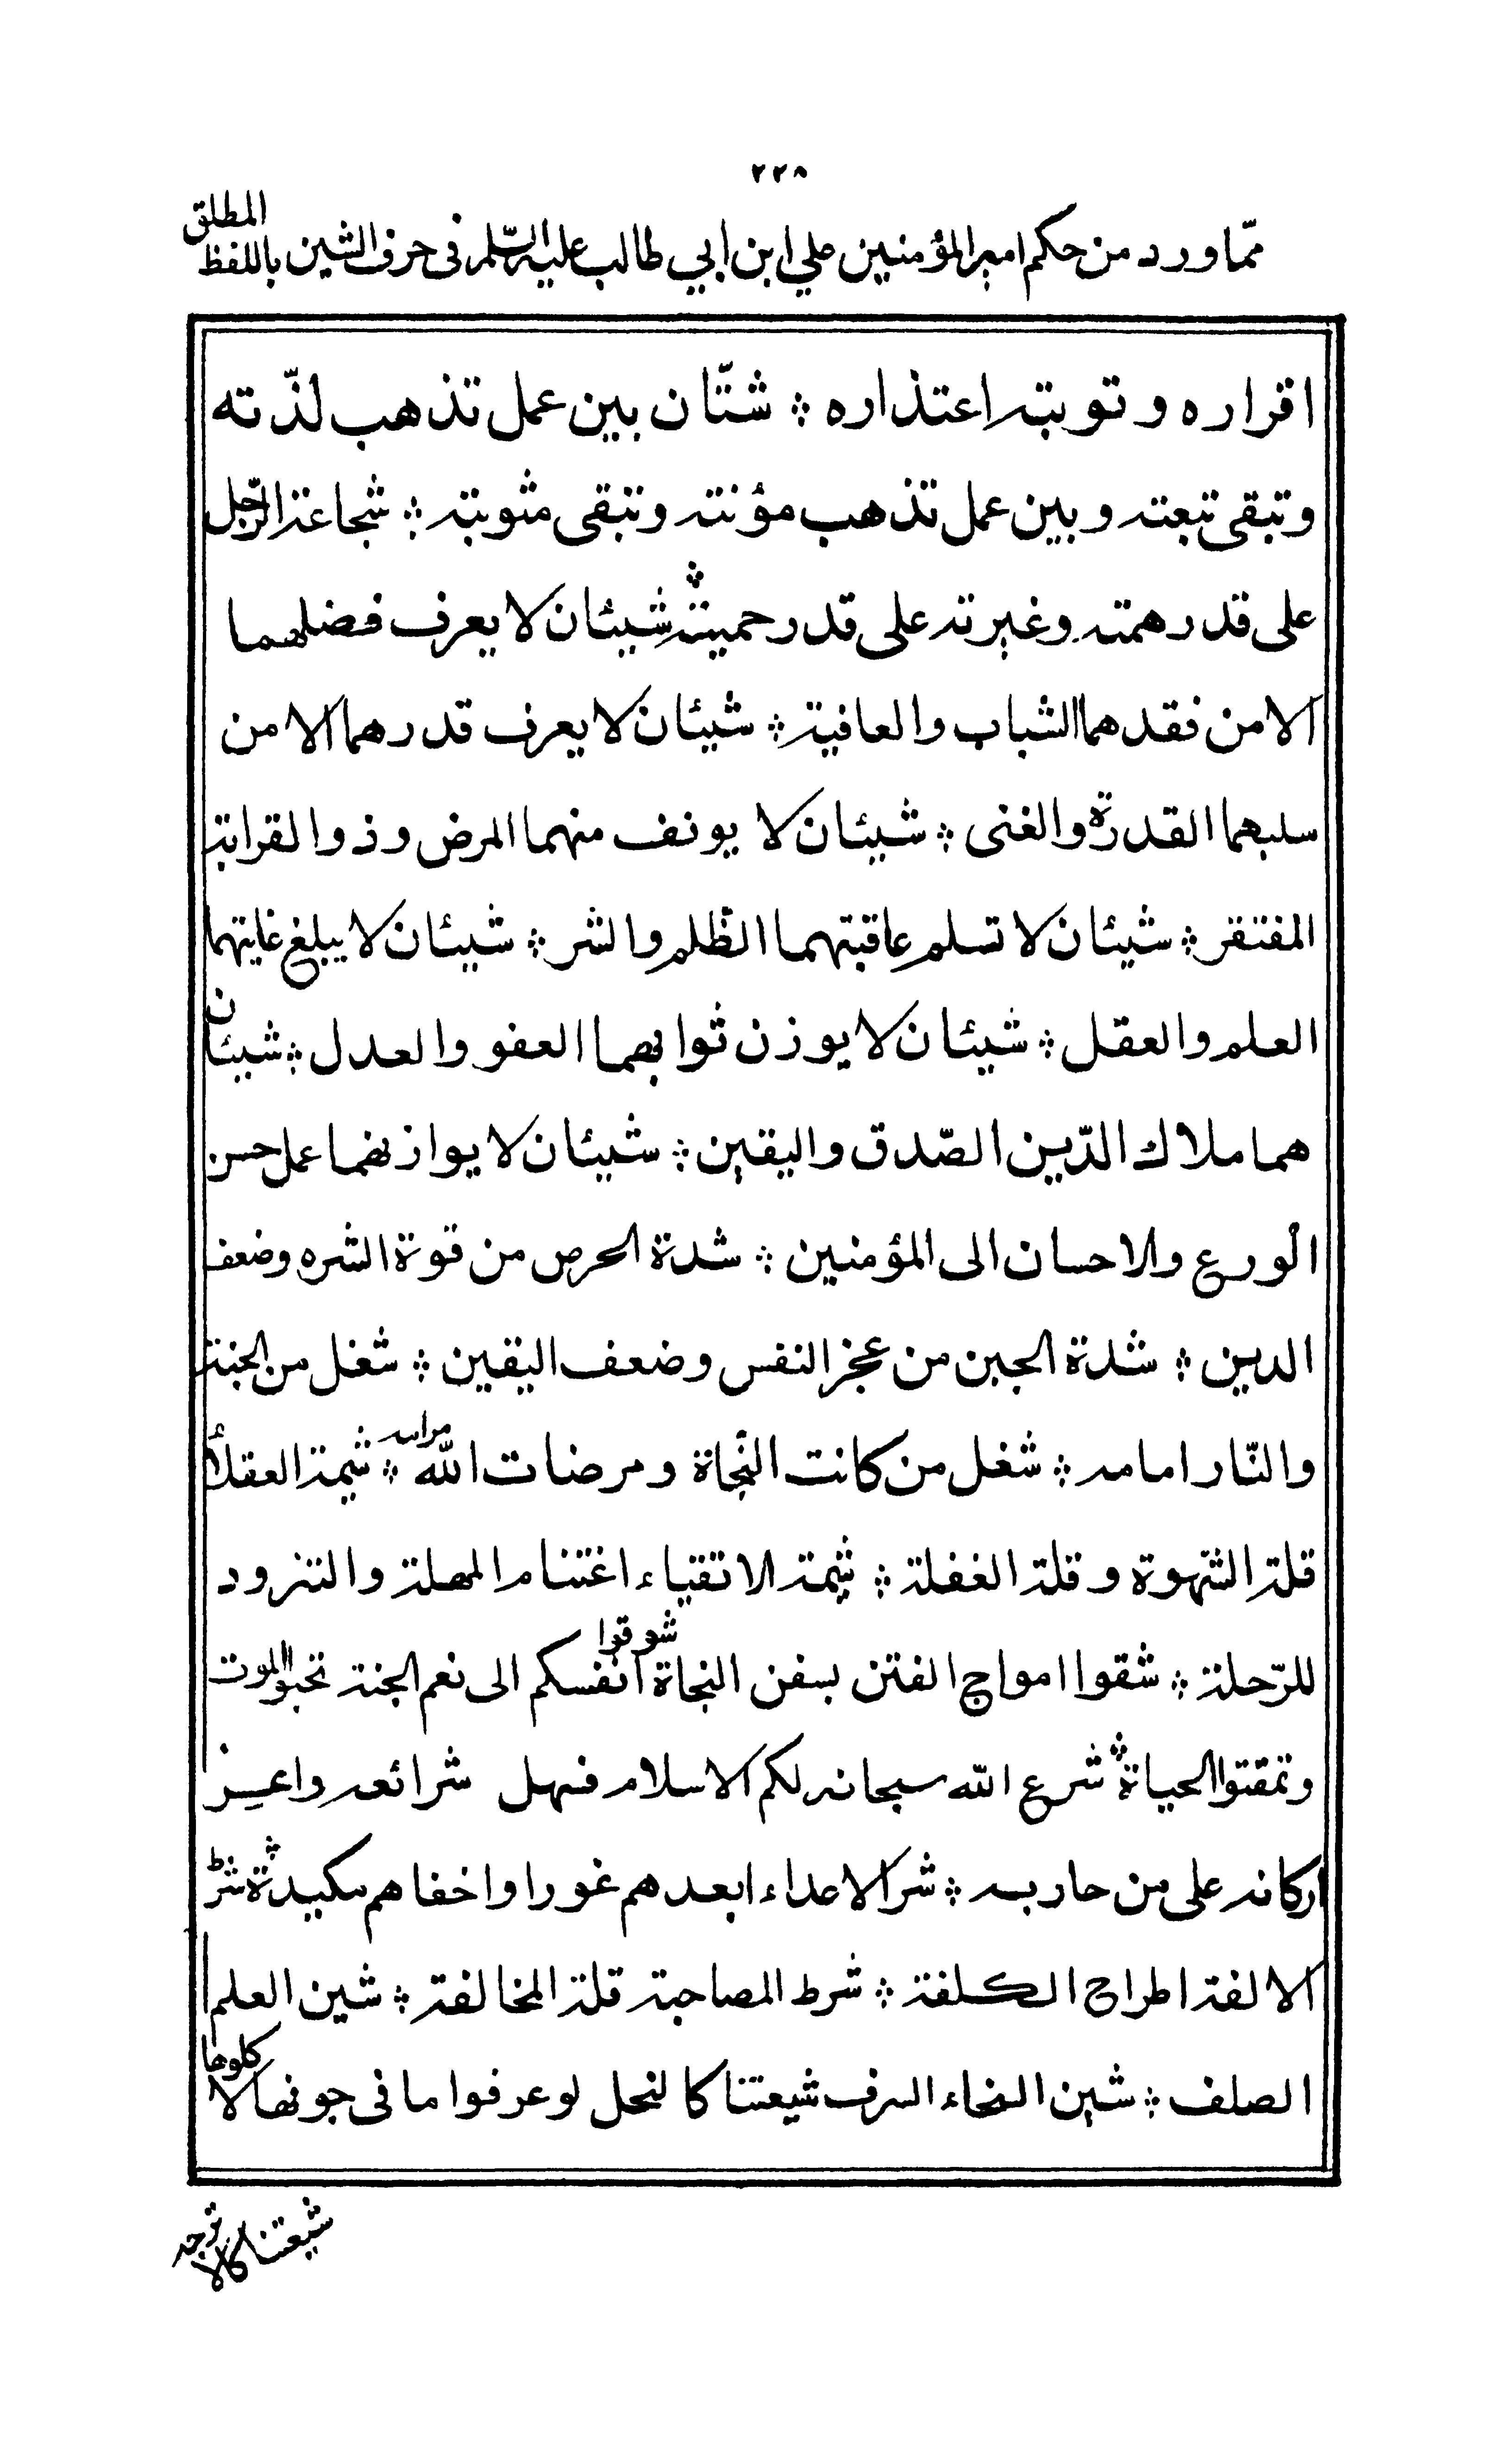 ٢٢٨
ممّا ورد من حكم امير المؤمنين علي ابن ابي طالب عليه السّلم فى حرف الشين باللفظ المطلق
اقراره و توبته اعتذاره ؞ شتّان بين عمل تذهب لذّته
وتبقى تبعته وبين عمل تذهب مؤنته وتبقى مثوبته ؞ شجاعة الرّجل
على قدر همته وغيرته على قدر حميته ؞ شيئان لا يعرف فضلهما
الا من فقدهما الشباب والعافية ؞ شيئان لا يعرف قدرهما الا من
سلبهما القدرة والغنى ؞ شيئان لا يونف منهما المرض وذو القرابة
المفتقر ؞ شيئان لا تسلم عاقبتهما الظلم والشر ؞ شيئان لا يبلغ غايتهما
العلم والعقل ؞ شيئان لا يوزن ثوابهما العفو والعدل ؞ شيئان
هما ملاك الدّين الصّدق واليقين ؞ شيئان لا يوازنهما عمل حسن
الورع والاحسان الى المؤمنين ؞ شدة الحرص من قوة الشره وضعف
الدين ؞ شدة الجبن من عجز النفس وضعف اليقين ؞ شغل من الجنة
والنّار امامه ؞ شغل من كانت النّجاة ومرضات الله مرامه ؞ شيمة العقلاء
قلة الشهوة وقلة الغفلة ؞ شيمة الاتقياء اغتنام المهلة والتزود
للرّحلة ؞ شقوا امواج الفتن بسفن النجاة شوقوا انفسكم الى نعم الجنة تحبوا الموت
وتمقتوا الحياة ؞ شرع الله سبحانه لكم الاسلام فسهل شرائعه واعز
اركانه على من حاربه ؞ شر الاعداء ابعدهم غورا واخفاهم مكيدة ؞ شرط
الالفة اطراح الكلفة ؞ شرط المصاحبة قلة المخالفة ؞ شين العلم
الصلف ؞ شين السخاء السرف شيعتنا كالنحل لو عرفوا ما فى جوفها لاكلوها
شيعتنا كالاترجه